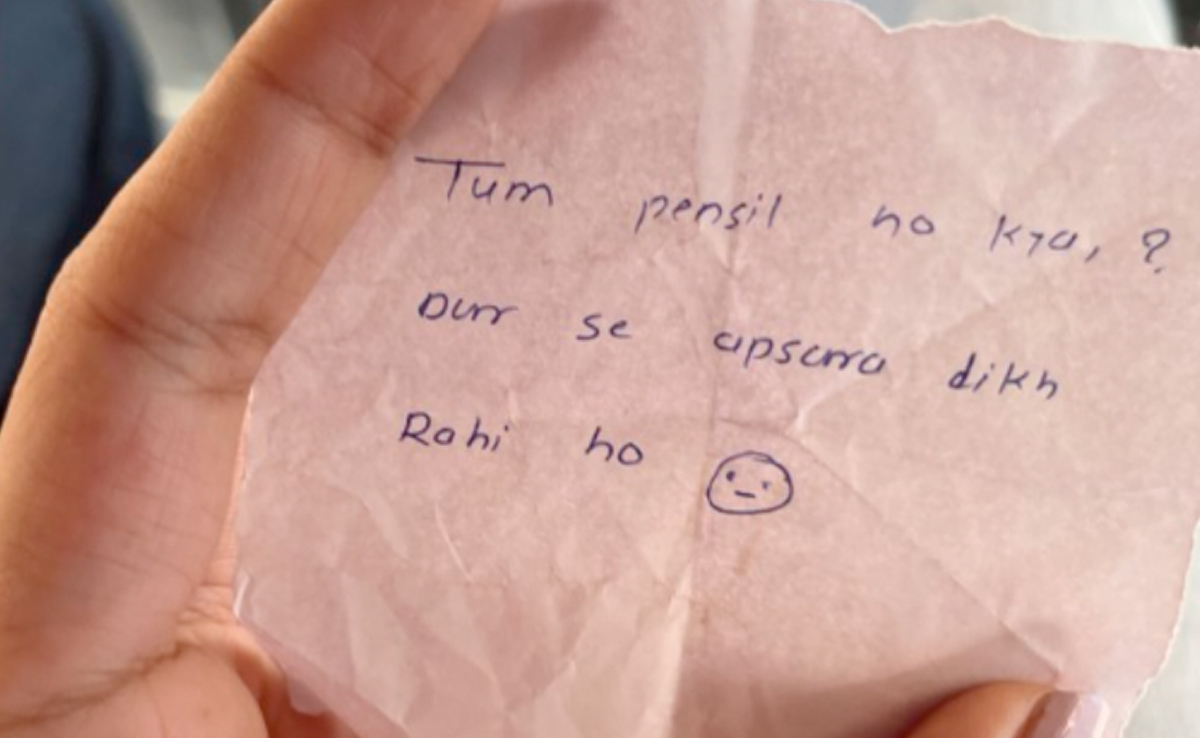 Tum pensil ho kya, ?
Durr se apsara dikh
Rahi ho